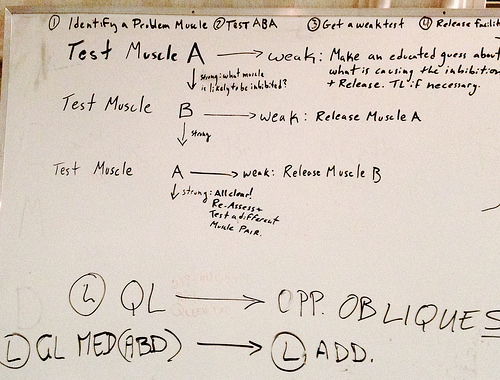 ① Identify a Problem Muscle ② TEST ABA ③ Get a weak test ④ Release facili
Test Muscle A → weak: Make an educated guess about
what is causing the inhibition
+ Release. TL if necessary.
↓ strong: what muscle
is likely to be inhibited?
Test Muscle B → weak: Release Muscle A
↓ strong
Test Muscle A → weak: Release Muscle B
↓ strong: All clear!
Re-Assess +
Test a different
Muscle Pair.
Ⓛ QL → OPP. OBLIQUES
Ⓛ GL MED (ABD) → Ⓛ ADD.